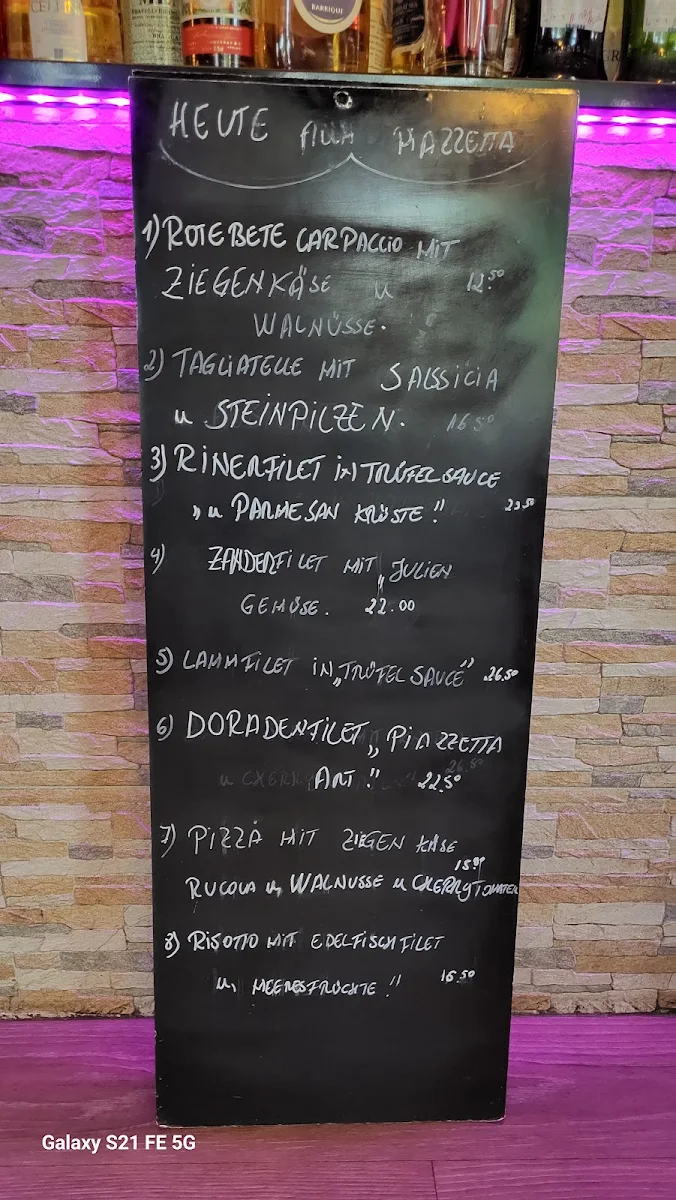 BARRIQUE
HEUTE ALLA PIAZZETTA
1) ROTE BETE CARPACCIO MIT
ZIEGENKÄSE u 12.50
WALNÜSSE.
2) TAGLIATELLE MIT SALSSICIA
u STEINPILZEN. 16.50
3) RINERFILET IN TRÜFEL SAUCE
„u PARMESAN KRUSTE!" 23.50
4) ZANDERFILET MIT „JULIEN
GEMÜSE. 22.00
5) LAMMFILET IN „TRÜFEL SAUCE" 26.50
6) DORADENFILET „PIAZZETTA
ART!" 22.50
7) PIZZA MIT ZIEGEN KÄSE
RUCOLA u, WALNUSSE u CHERRYTOMATEN
8) RISOTTO MIT EDELFISCHFILET
u, MEERESFRÜCHTE!" 16.50
Galaxy S21 FE 5G